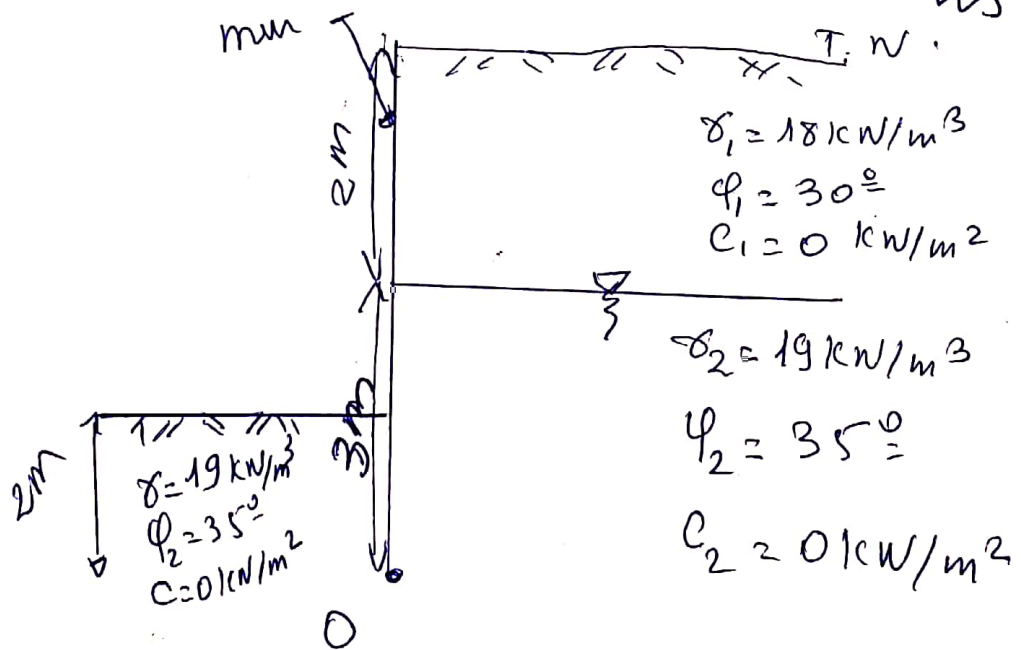 mur
T. N.
2m
γ₁ = 18 kN/m³
φ₁ = 30º
C₁ = 0 kN/m²
γ₂ = 19 kN/m³
φ₂ = 35º
C₂ = 0 kN/m²
3m
2m
γ = 19 kN/m³
φ₂ = 35º
C = 0 kN/m²
O